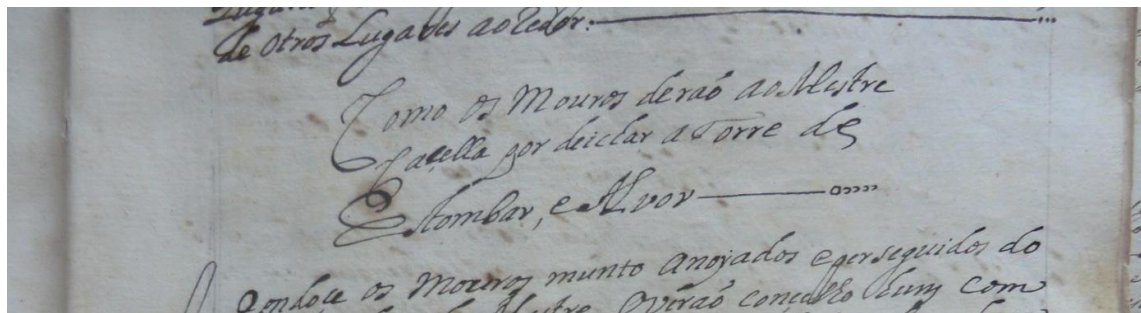 de otros Lugares ao redor.
Como os Mouros deraõ ao Mestre
Caçella por deichar a Torre de
Estombar, e Alvor
os Mouros munto anojados e perseguidos do
Mestre ouveraõ concelho huns com